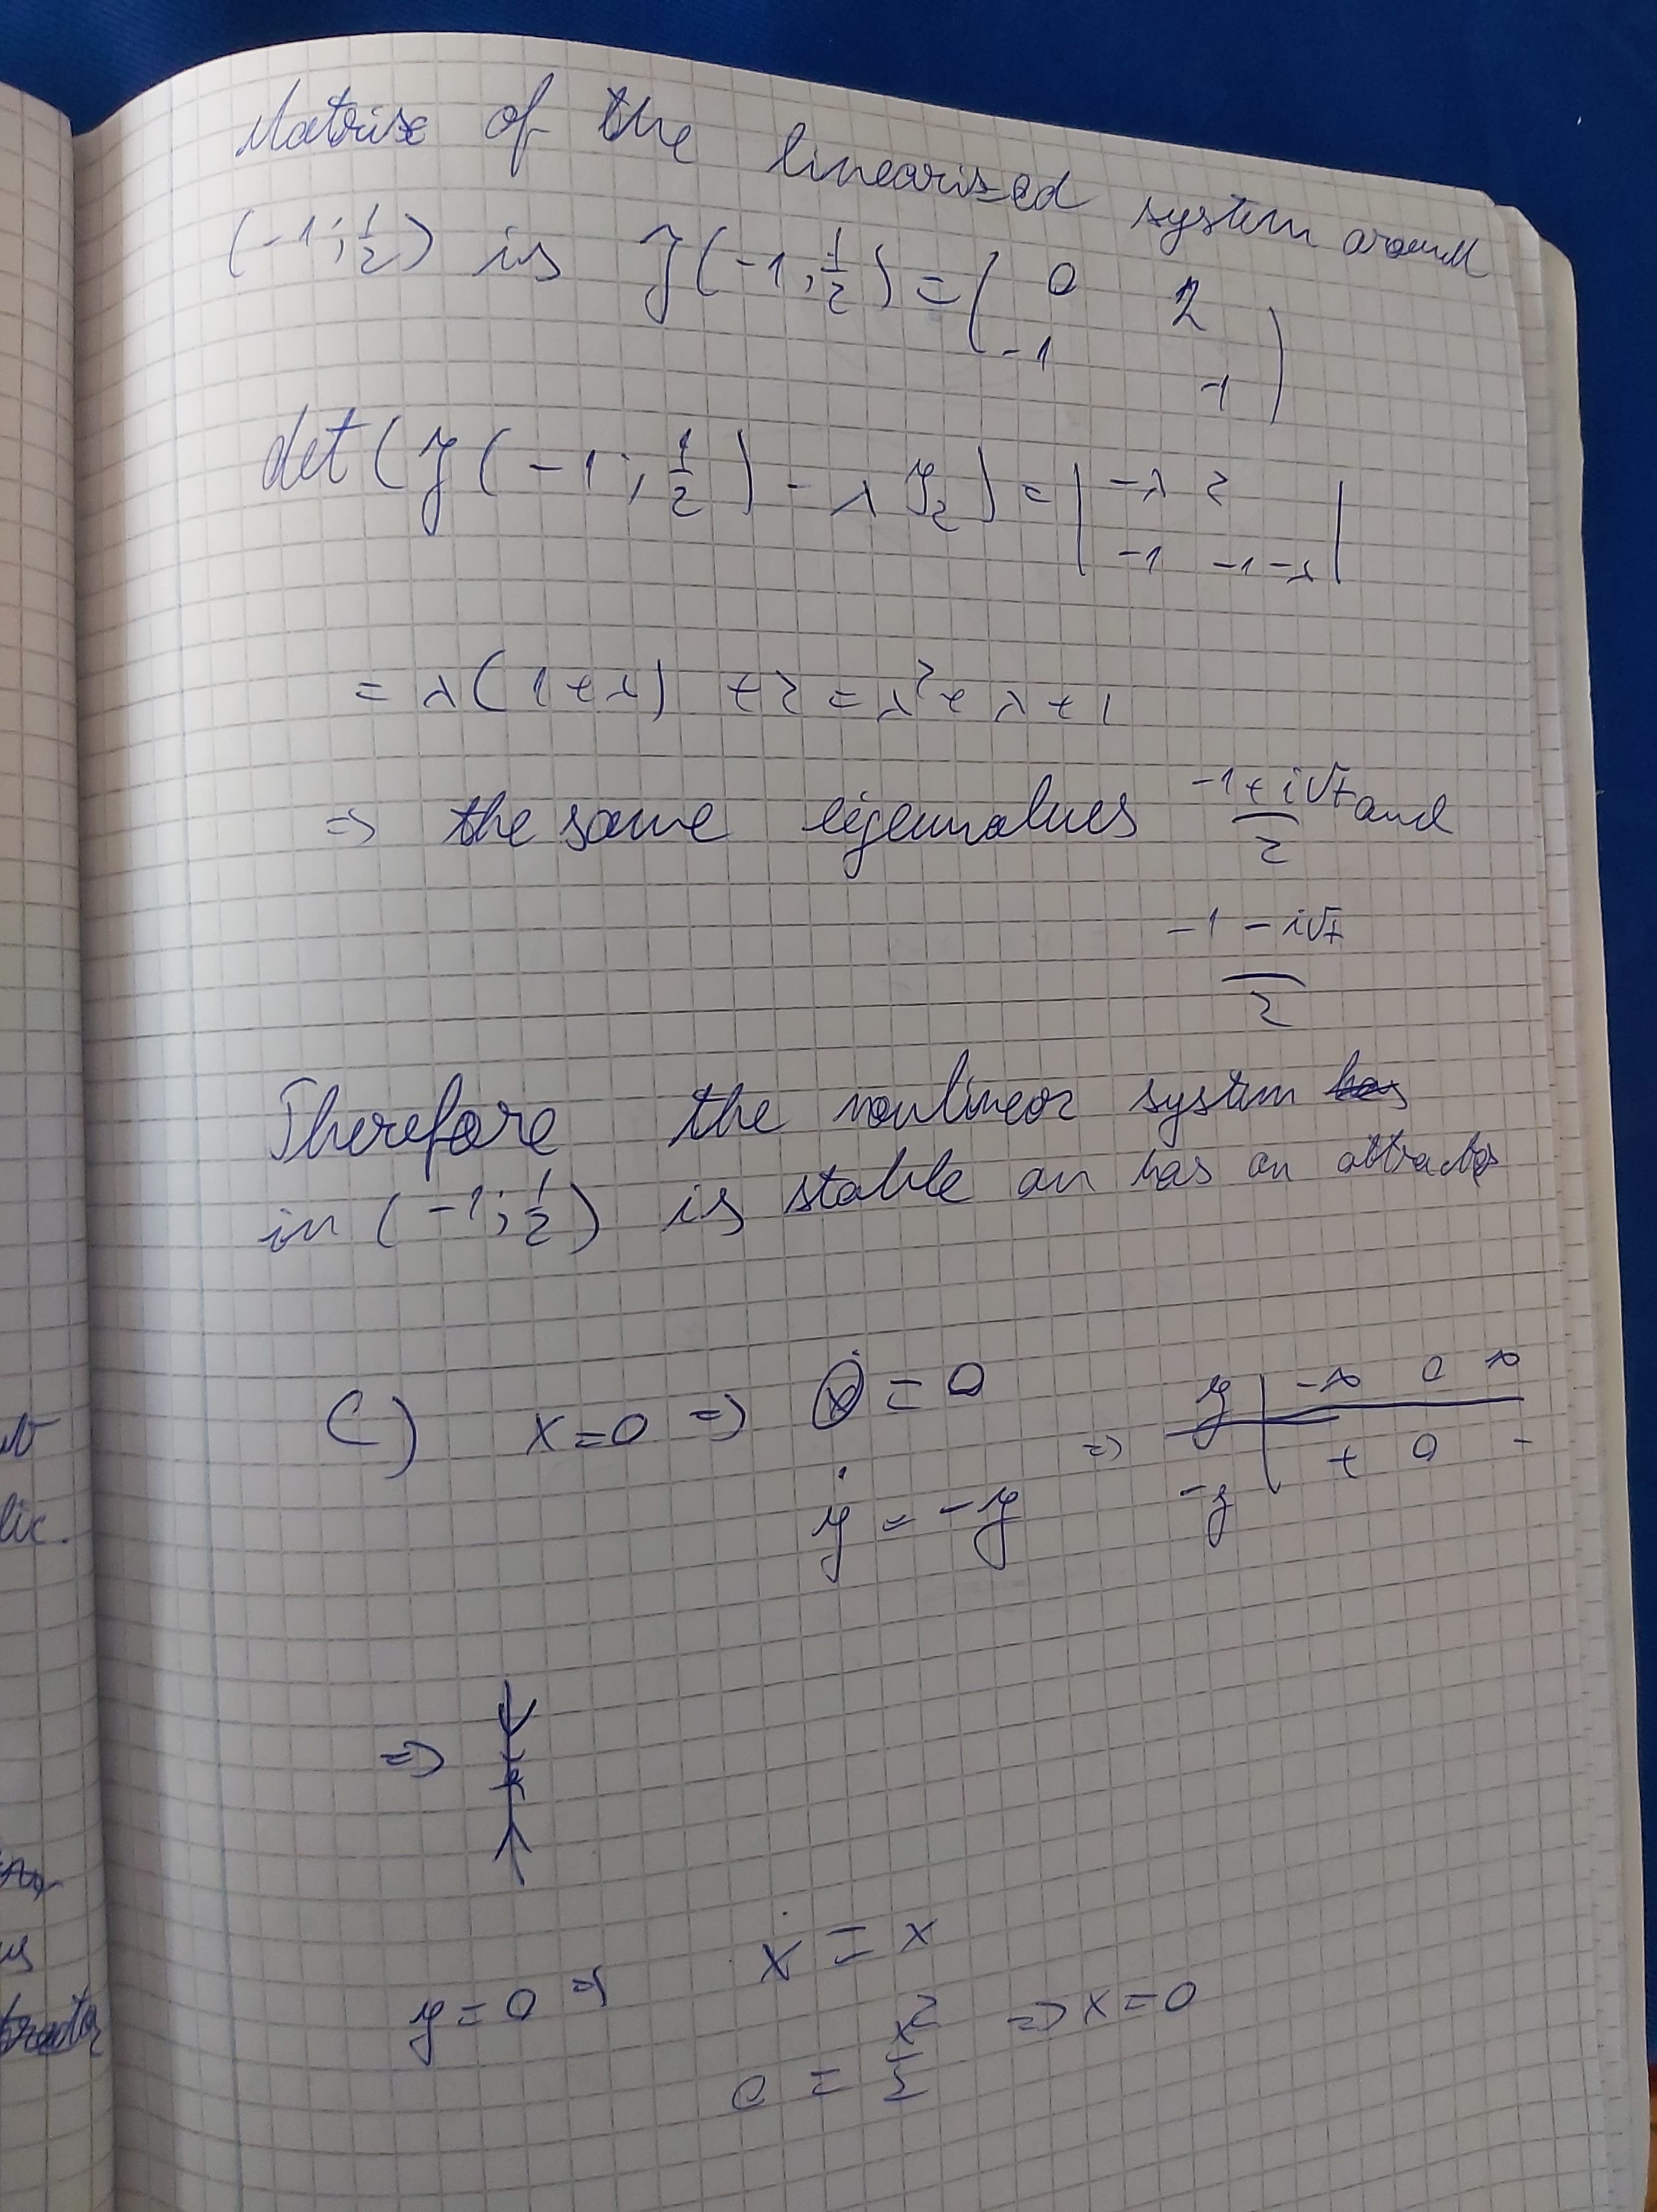 Matrix of the linearised system around
(-1; 1/2) is J(-1, 1/2) = ( 0 2
-1 -1 )
det(J(-1; 1/2) - λ J₂) = | -λ 2
-1 -1-λ |
= λ(1+λ) +2 = λ²+ λ+1
=> the same eigenvalues (-1+i√7)/2 and
(-1-i√7)/2
Therefore the nonlinear system
in (-1; 1/2) is stable an has an attractor
C) x=0 => ẋ = 0 => y | -∞ 0 ∞
ẏ = -y -y | + 0 -
=>
y=0 => ẋ = x
0 = x²/2 => x=0
lic.